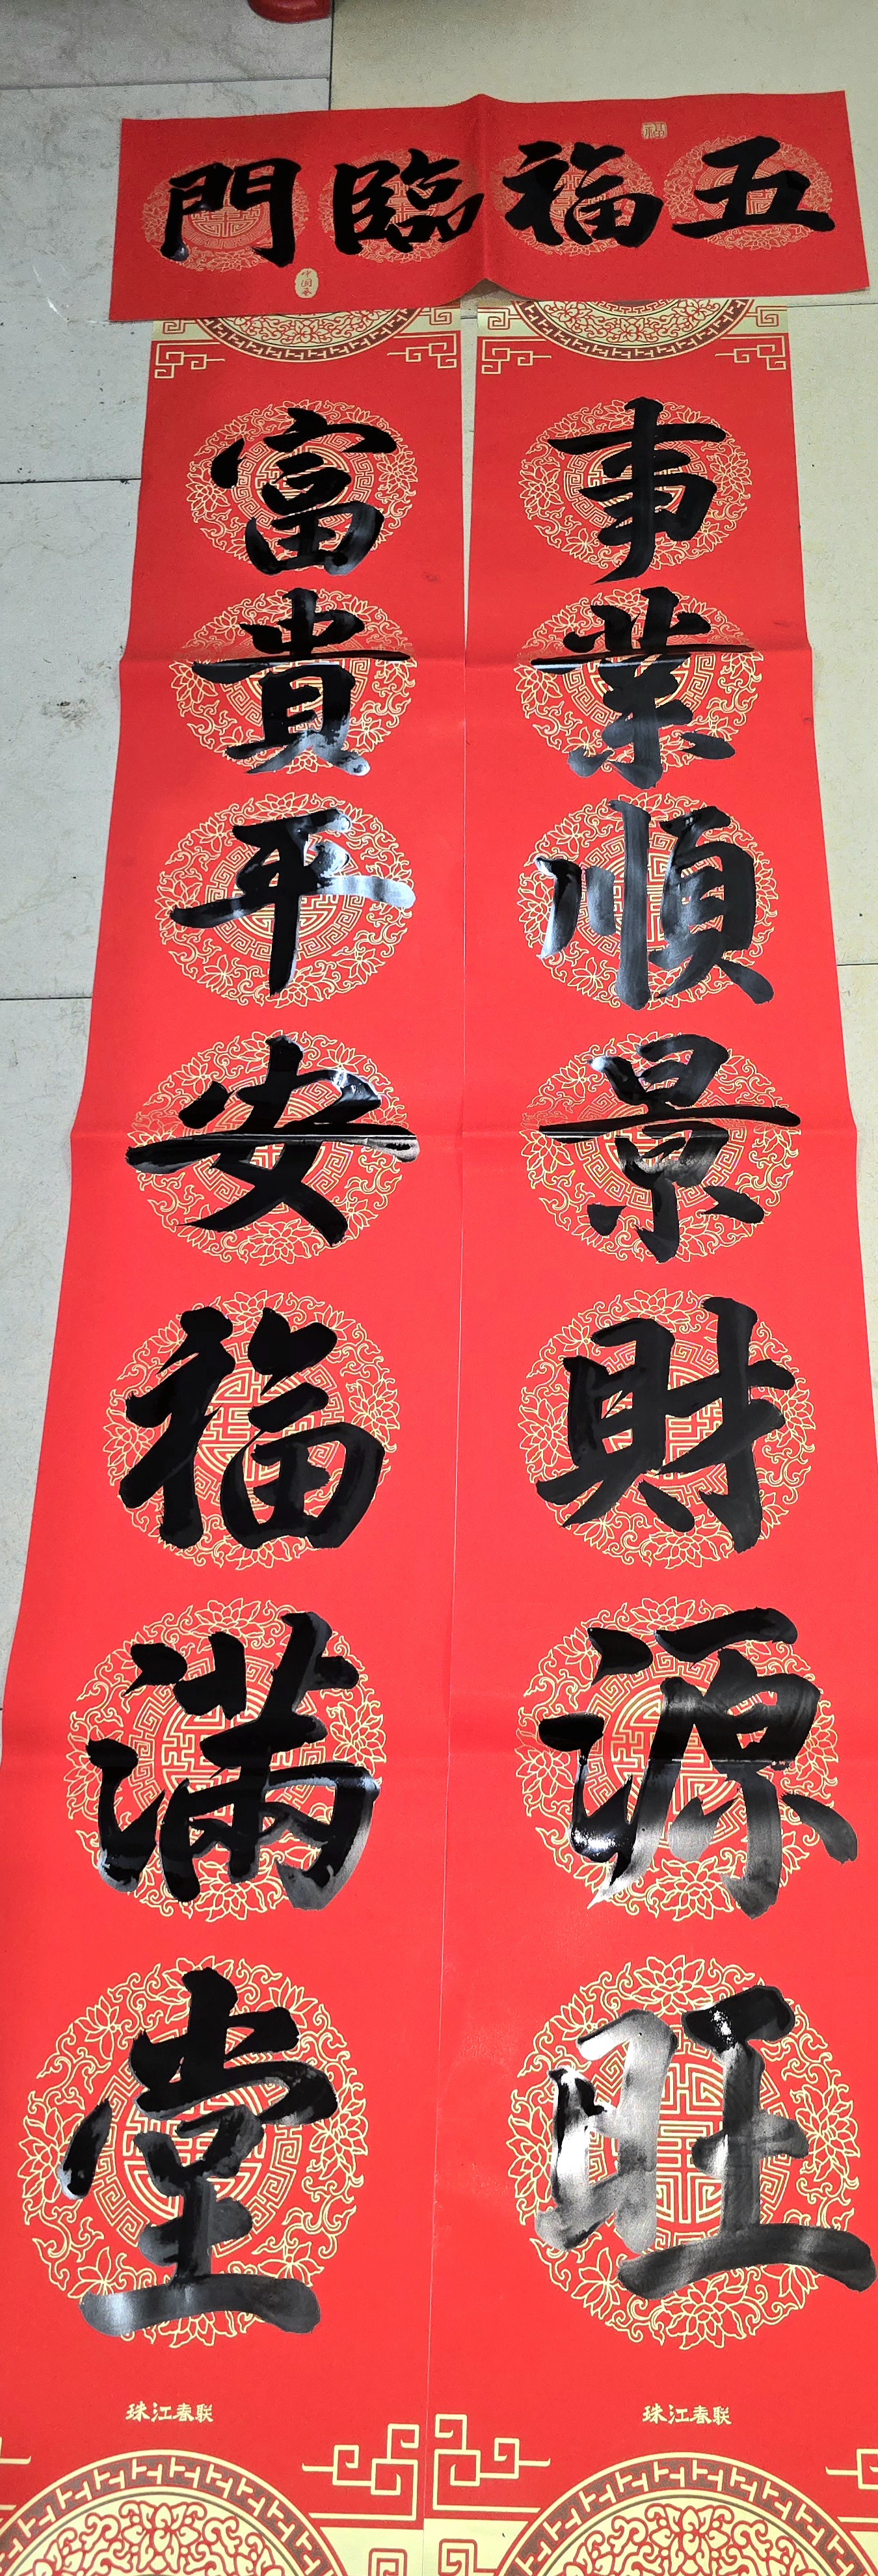 五福臨門
福
中国風
事業順景財源旺
富貴平安福满堂
珠江春联
珠江春联